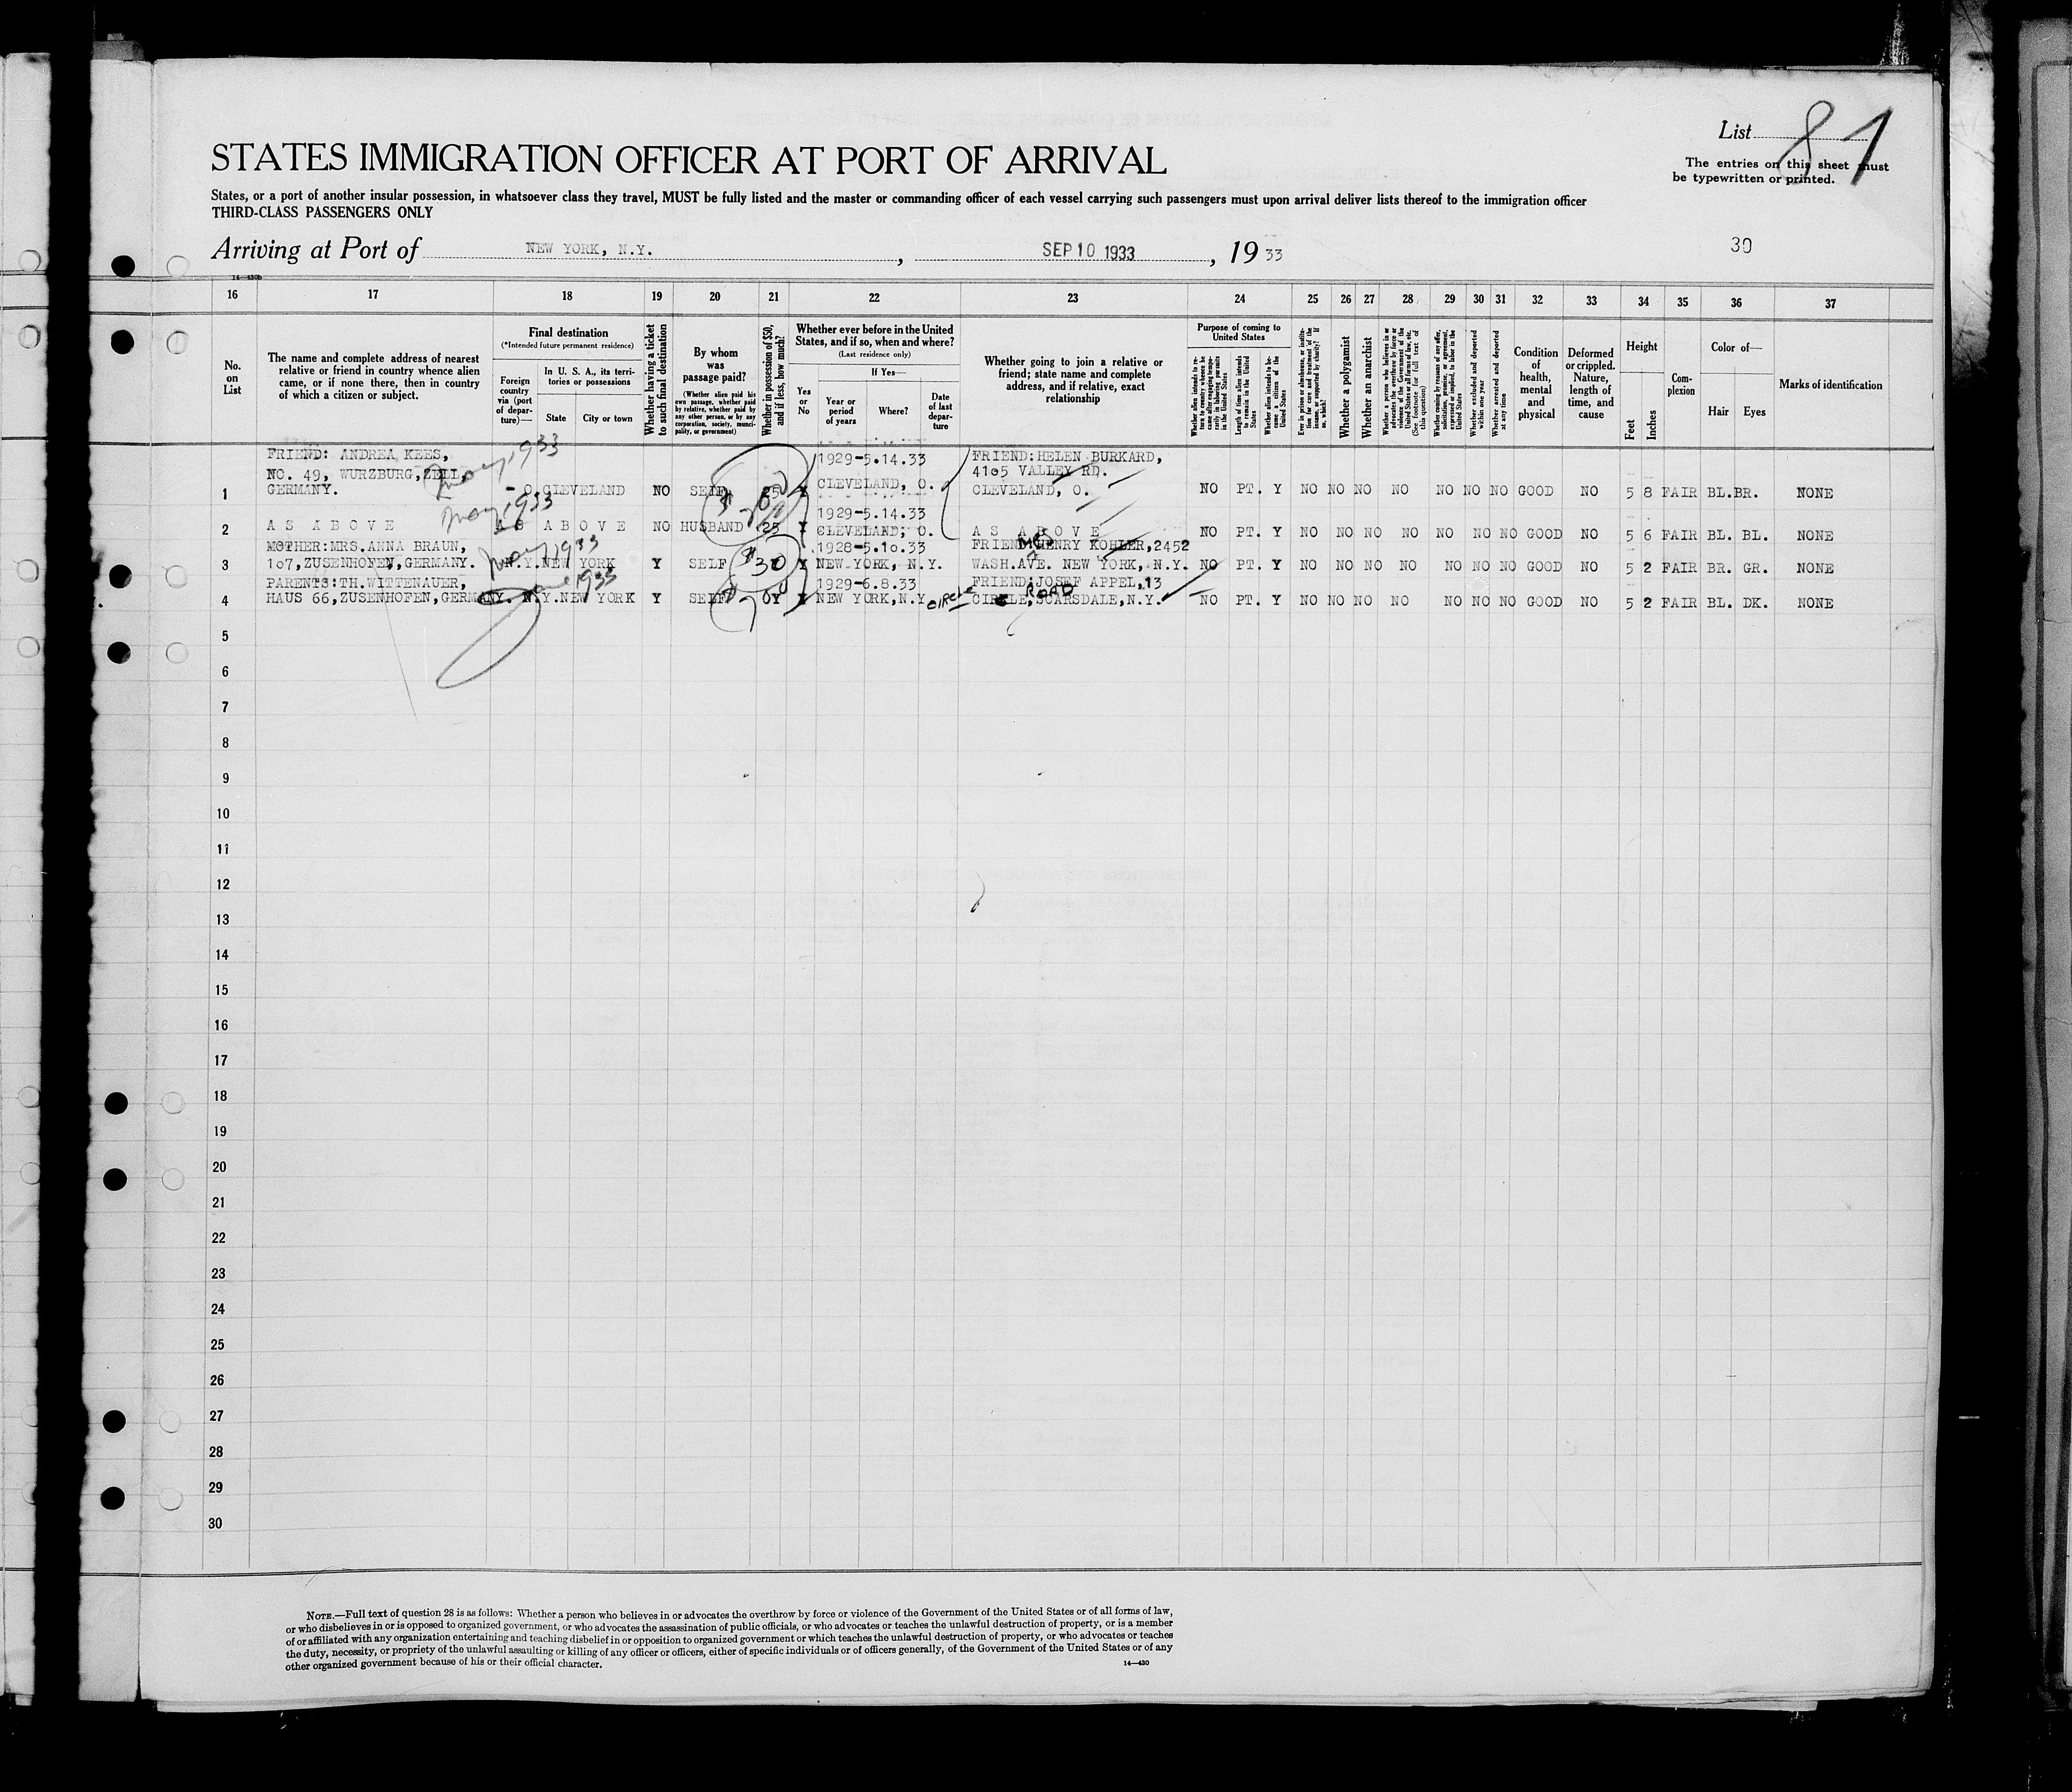 List 81
The entries on this sheet must
be typewritten or printed.
STATES IMMIGRATION OFFICER AT PORT OF ARRIVAL
States, or a port of another insular possession, in whatsoever class they travel, MUST be fully listed and the master or commanding officer of each vessel carrying such passengers must upon arrival deliver lists thereof to the immigration officer
THIRD-CLASS PASSENGERS ONLY
Arriving at Port of NEW YORK, N.Y. , SEP 10 1933 , 19 33
30
14—430b
16 17 18 19 20 21 22 23 24 25 26 27 28 29 30 31 32 33 34 35 36 37
No. on List
The name and complete address of nearest
relative or friend in country whence alien
came, or if none there, then in country
of which a citizen or subject.
Final destination
(*Intended future permanent residence)
Foreign country via (port of departure)—
In U. S. A., its territories or possessions
State
City or town
Whether having a ticket to such final destination
By whom was passage paid?
(Whether alien paid his own passage, whether paid by relative, whether paid by any other person, or by any corporation, society, municipality, or government)
Whether in possession of $50, and if less, how much?
Whether ever before in the United States, and if so, when and where?
(Last residence only)
Yes or No
If Yes—
Year or period of years
Where?
Date of last departure
Whether going to join a relative or
friend; state name and complete
address, and if relative, exact
relationship
Purpose of coming to United States
Whether alien intends to return to country whence he came after engaging temporarily in laboring pursuits in the United States
Length of time alien intends to remain in the United States
Whether alien intends to become a citizen of the United States
Ever in prison or almshouse, or institution for care and treatment of the insane, or supported by charity? If so, which?
Whether a polygamist
Whether an anarchist
Whether a person who believes in or advocates the overthrow by force or violence of the Government of the United States or all forms of law, etc. (See footnote for full text of this question)
Whether coming by reasons of any offer, solicitation, promise, or agreement, expressed or implied, to labor in the United States
Whether excluded and deported within one year
Whether arrested and deported at any time
Condition of health, mental and physical
Deformed or crippled. Nature, length of time, and cause
Height
Feet
Inches
Complexion
Color of—
Hair Eyes
Marks of identification
FRIEND: ANDREA KEES, May 1933 1929-5.14.33 FRIEND:HELEN BURKARD,
NO. 49, WURZBURG,ZELL, CLEVELAND, O. 4105 VALLEY RD.
1 GERMANY. O.CLEVELAND NO SELF 25 Y CLEVELAND, O. NO PT. Y NO NO NO NO NO NO NO GOOD NO 5 8 FAIR BL.BR. NONE
May 1933 1929-5.14.33
2 AS ABOVE AS ABOVE NO HUSBAND 25 Y CLEVELAND, O. AS ABOVE NO PT. Y NO NO NO NO NO NO NO GOOD NO 5 6 FAIR BL. BL. NONE
MOTHER:MRS.ANNA BRAUN, May 1933 1928-5.10.33 FRIEND: HENRY KOHLER,2452
3 107,ZUSENHOFEN,GERMANY. N.Y.NEW YORK Y SELF $30 Y NEW YORK, N.Y. WASH.AVE. NEW YORK, N.Y. NO PT. Y NO NO NO NO NO NO NO GOOD NO 5 2 FAIR BR. GR. NONE
PARENTS:TH.WITTENAUER, June 1933 1929-6.8.33 FRIEND:JOSEF APPEL,13
4 HAUS 66,ZUSENHOFEN,GERMANY. N.Y.NEW YORK Y SELF Y NEW YORK,N.Y. CIRCLE ROAD CIRCLE,SCARSDALE,N.Y. NO PT. Y NO NO NO NO NO NO NO GOOD NO 5 2 FAIR BL. DK. NONE
5
6
7
8
9
10
11
12
13
14
15
16
17
18
19
20
21
22
23
24
25
26
27
28
29
30
NOTE.—Full text of question 28 is as follows: Whether a person who believes in or advocates the overthrow by force or violence of the Government of the United States or of all forms of law,
or who disbelieves in or is opposed to organized government, or who advocates the assassination of public officials, or who advocates or teaches the unlawful destruction of property, or is a member
of or affiliated with any organization entertaining and teaching disbelief in or opposition to organized government or which teaches the unlawful destruction of property, or who advocates or teaches
the duty, necessity, or propriety of the unlawful assaulting or killing of any officer or officers, either of specific individuals or of officers generally, of the Government of the United States or of any
other organized government because of his or their official character.
14—430